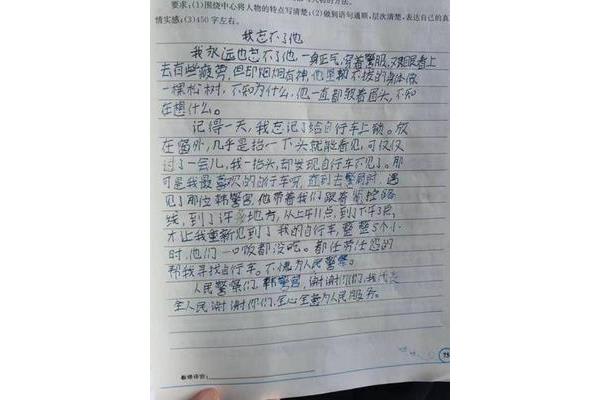 要求:(1)围绕中心将人物的特点写清楚;(2)做到语句通顺,层次清楚,表达自己的真
情实感;(3)450字左右。
我忘不了他
我永远也忘不了他,一身正气,穿着警服,双眼看上
去有些疲劳,但却炯炯有神,他坚韧不拔的身体像
一棵松树,不知为什么,他一直都皱着眉头,不知
在想什么。
记得一天,我忘记了给自行车上锁。放
在窗外,几乎是抬一下头就能看见,可仅仅
过了一会儿,我一抬头,却发现自行车不见了。那
可是我最喜欢的自行车呀,直到去警局时,遇
见了那位韩警官,他带着我们跟着监控路
线,到了许多地方,从上午11点,到下午3点,
才让我重新见到了我的自行车,整整5个小
时,他们一口饭都没吃。都任劳任怨的
帮我寻找自行车。不愧为人民警察。
人民警察们,韩警官,谢谢你们,我代表
全人民谢谢你们,全心全意为人民服务。
75